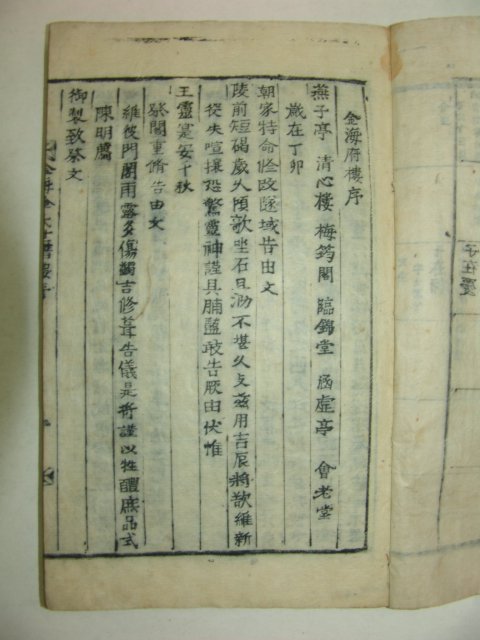 金海府樓序
燕子亭 清心樓 梅筠閣 臨錦堂 涵虛亭 會老堂
歲在丁卯
朝家特命修改隧域告由文
陵前短碣歲久頃欹坐石且泐不堪久支茲用吉辰將欲維新
從失喧攘恐驚靈神謹具脯醢敢告厥由伏惟
王靈寔安千秋
閣重脩告由文
維彼門閣雨露多傷蠲吉修葺告儀是將謹以牲醴庶品式
陳明薦
御製致祭文